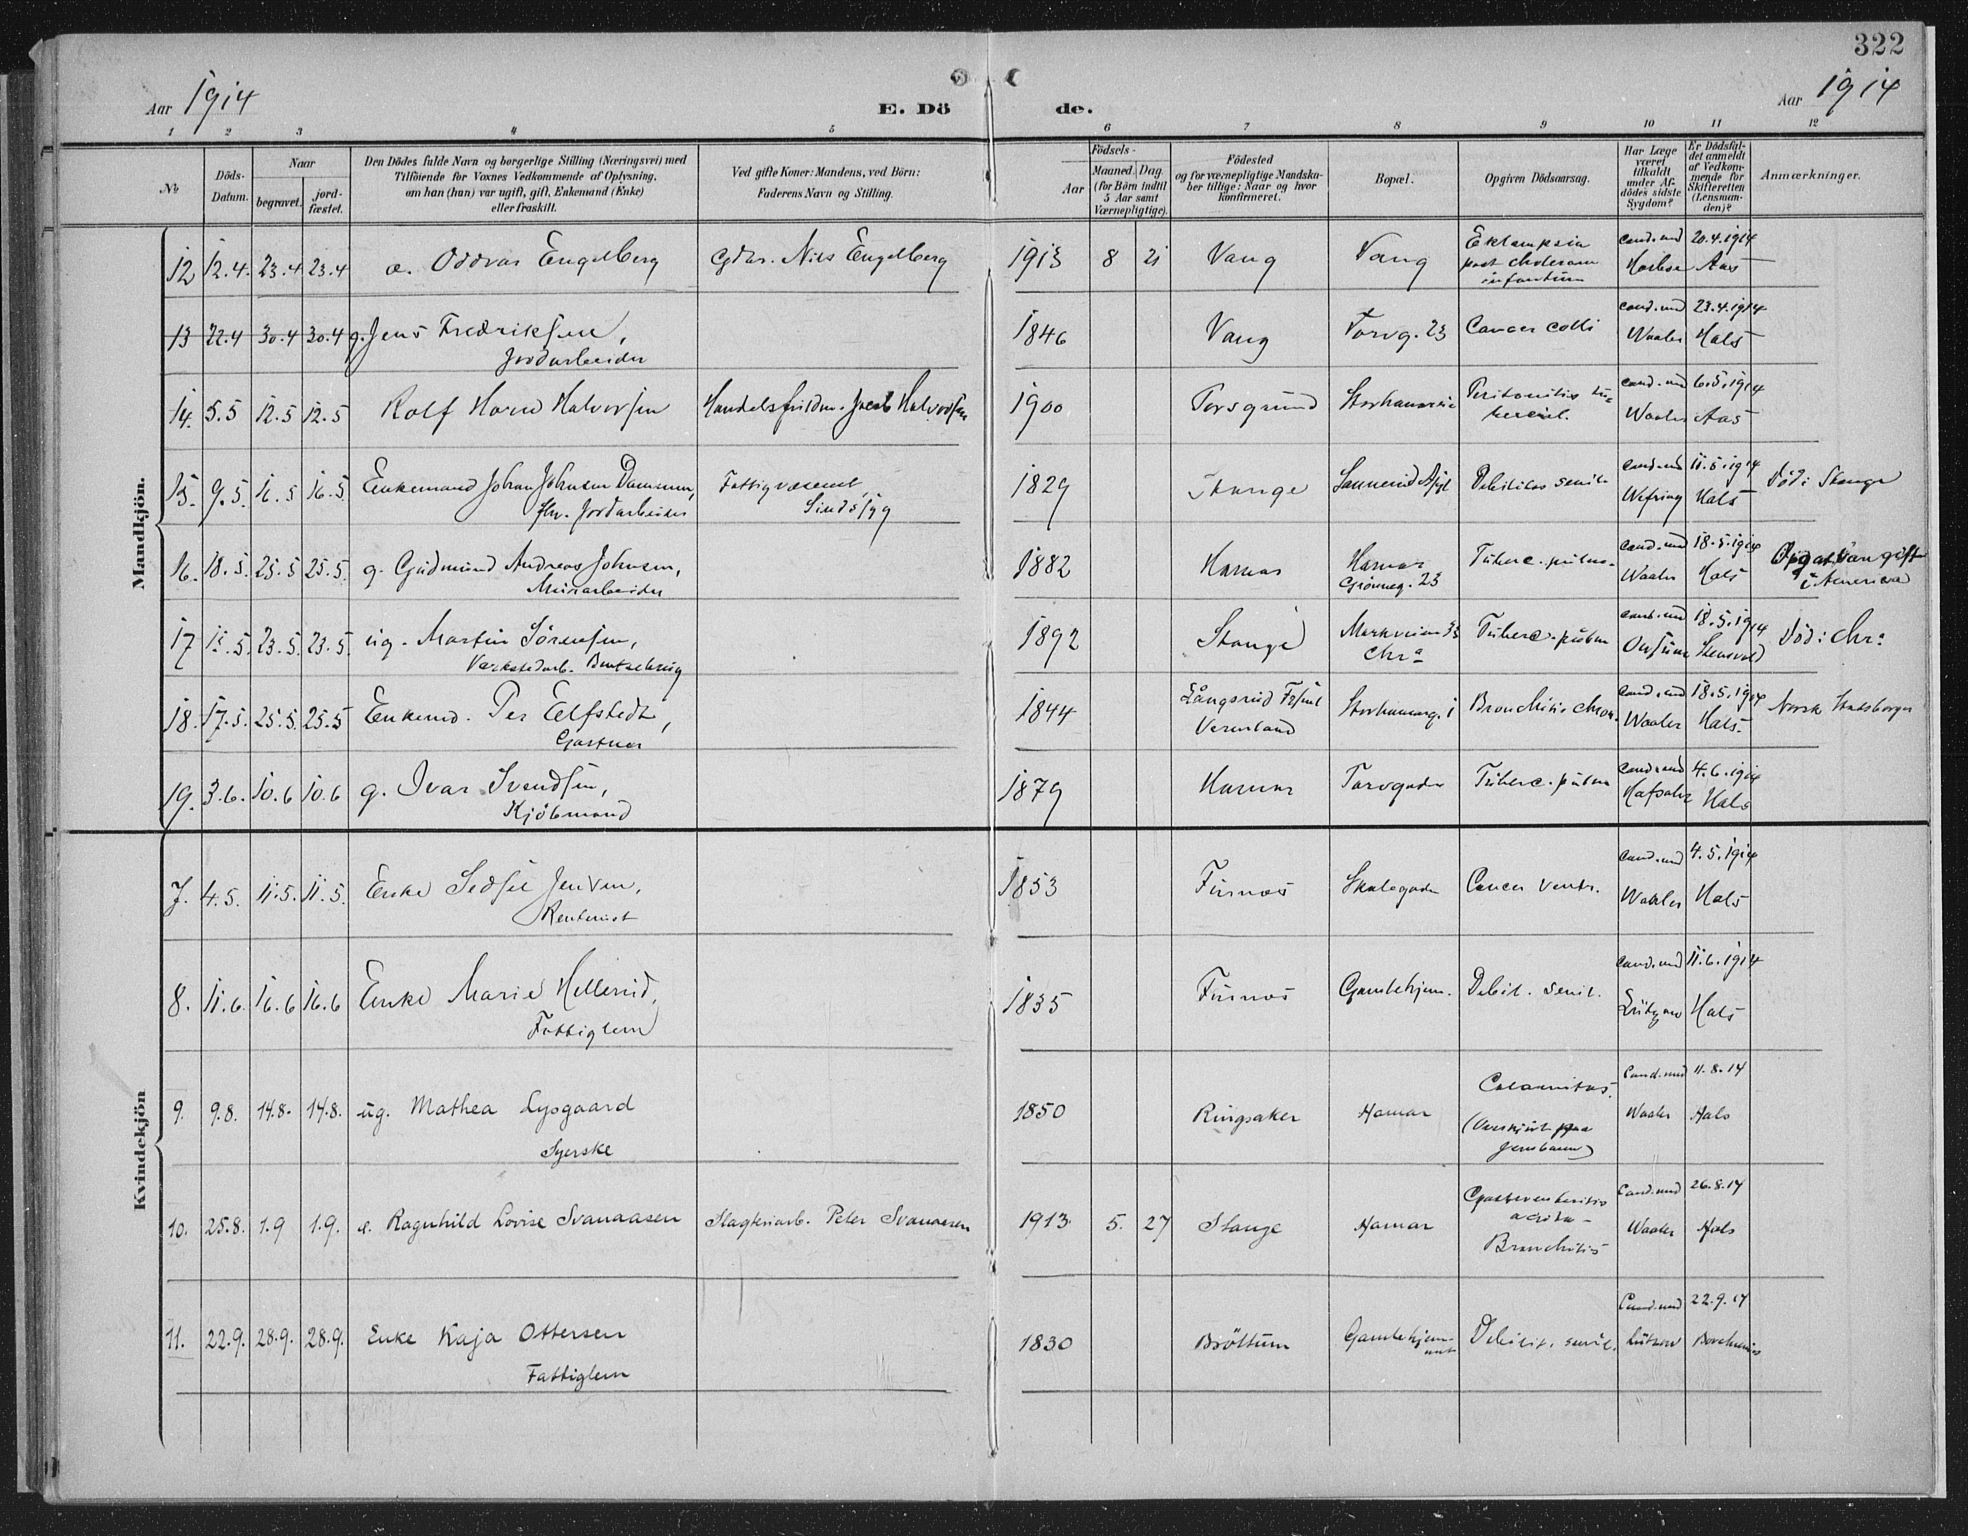 322
Aar 1914
E. Döde.
Aar 1914
1 2 3 4 5 6 7 8 9 10 11 12
No
Döds-Datum.
Naar
begravet.
jord-fæstet.
Den Dödes fulde Navn og borgerlige Stilling (Næringsvei) med
Tilföiende for Voxnes Vedkommende af Oplysning,
om han (hun) var ugift, gift, Enkemand (Enke)
eller fraskilt.
Ved gifte Koner: Mandens, ved Börn:
Faderens Navn og Stilling.
Födsels-
Aar
Maaned. Dag.
(for Börn indtil
5 Aar samt
Værnepligtige).
Födested
og for værnepligtige Mandska-
ber tillige: Naar og hvor
konfirmeret.
Bopæl.
Opgiven Dödsaarsag.
Har Læge
været
tilkaldt
under Af-
dödes sidste
Sygdom?
Er Dödsfal-
det anmeldt
af Vedkom-
mende for
Skifteretten
(Lensman-
den)?
Anmærkninger.
Mandkjön.
12 12.4. 23.4 23.4 e. Oddvar Engelberg Gdbr. Nils Engelberg 1913 8 21 Vang Vang Eklampsia cand. med 20.4.1914
post choleram Aas
infantum
13 22.4 30.4 30.4 g. Jens Fredriksen, 1846 Vang Torvg. 23 Cancer colli cand. med 23.4.1914
Jordarbeider Waaler Hals
14. 5.5 12.5 12.5 Rolf Horn Halvorsen Handelsfuldm. Jacob Halvorsen 1900 Porsgrund Storhamar Peritonitis tu- cand. med 6.5.1914
bercul. Waaler Aas
15. 9.5. 16.5 16.5 Enkemand Johan Johnsen Dammen, Fattigvæsenet, 1829 Stange Sannerud Asyl Debilitas senil. cand. med 11.5.1914 Död i Stange
fhv. Jordarbeider Sindssyg Wefring Hals
16. 18.5. 25.5 25.5. g. Gudmund Andreas Johnsen, 1882 Hamar Hamar Tuberc. pulm. cand. med 18.5.1914
Murarbeider Grönneg. 23 Waaler Hals i Amerika
17 11.5. 23.5. 23.5. ug. Martin Sörensen, 1892 Stange Markveien 33 Tuberc. pulm cand. med 18.5.1914 Död i Chr.a
Værkstedarb. Chr.a Stensvold
18. 17.5. 25.5. 25.5 Enkemd. Per Elfstedt, 1844 Långsrud Storhamarg. 1 Bronchitis chron. cand. med 18.5.1914 Norsk Statsborger
Gartner Vermland Waaler Hals.
19. 3.6. 10.6 10.6 g. Ivar Svendsen, 1879 Hamar Torvgaden Tuberc. pulm cand. med 4.6.1914
Kjöbmand Hals
Kvindekjön
7. 4.5. 11.5. 11.5. Enke Sedsil Jensen, 1853 Furnæs Skolegaden Cancer ventr. cand. med 4.5.1914
Rentenist Waaler Hals
8. 11.6. 16.6 16.6 Enke Marie Hellerud, 1835 Furnæs Gamlehjem. Debil. senil. cand. med 11.6.1914
Fattiglem Lützow Hals
9. 9.8. 14.8. 14.8. ug. Mathea Lysgaard 1850 Ringsaker Hamar Calamitas. Cand. med 11.8.14
Syerske (Overkjört paa Waaler Hals
Jernbanen)
10. 25.8. 1.9 1.9. e. Ragnhild Lovise Svanaasen Slagteriarb. Peter Svanaasen 1913 5. 27 Stange Hamar Gastroenteritis Cand. med 26.8.14
acuta - Waaler Hals
Bronchitis
11. 22.9. 28.9. 28.9. Enke Kaja Ottersen 1830 Bröttum Gamlehjem- Debilit. senil. Cand. med 22.9.14
Fattiglem met Lützow